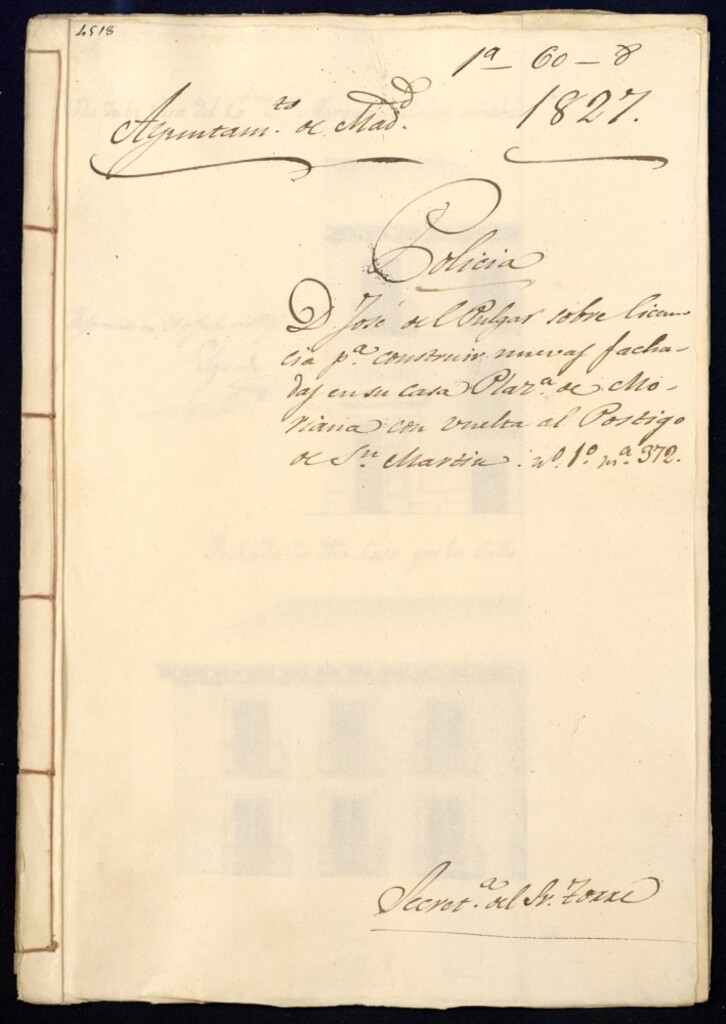 4518
1ª - 60 - 8
Ayuntam.to de Mad.d 1827.
Policia
D. José del Pulgar sobre licen-
cia p.ª construir nuevas facha-
das en su casa Plaz.ª de Mo-
riana con vuelta al Postigo
de S.n Martin. nº. 1º. mª. 372.
Fachada de dha Casa por la Calle
Secret.ª del Sr. Torre